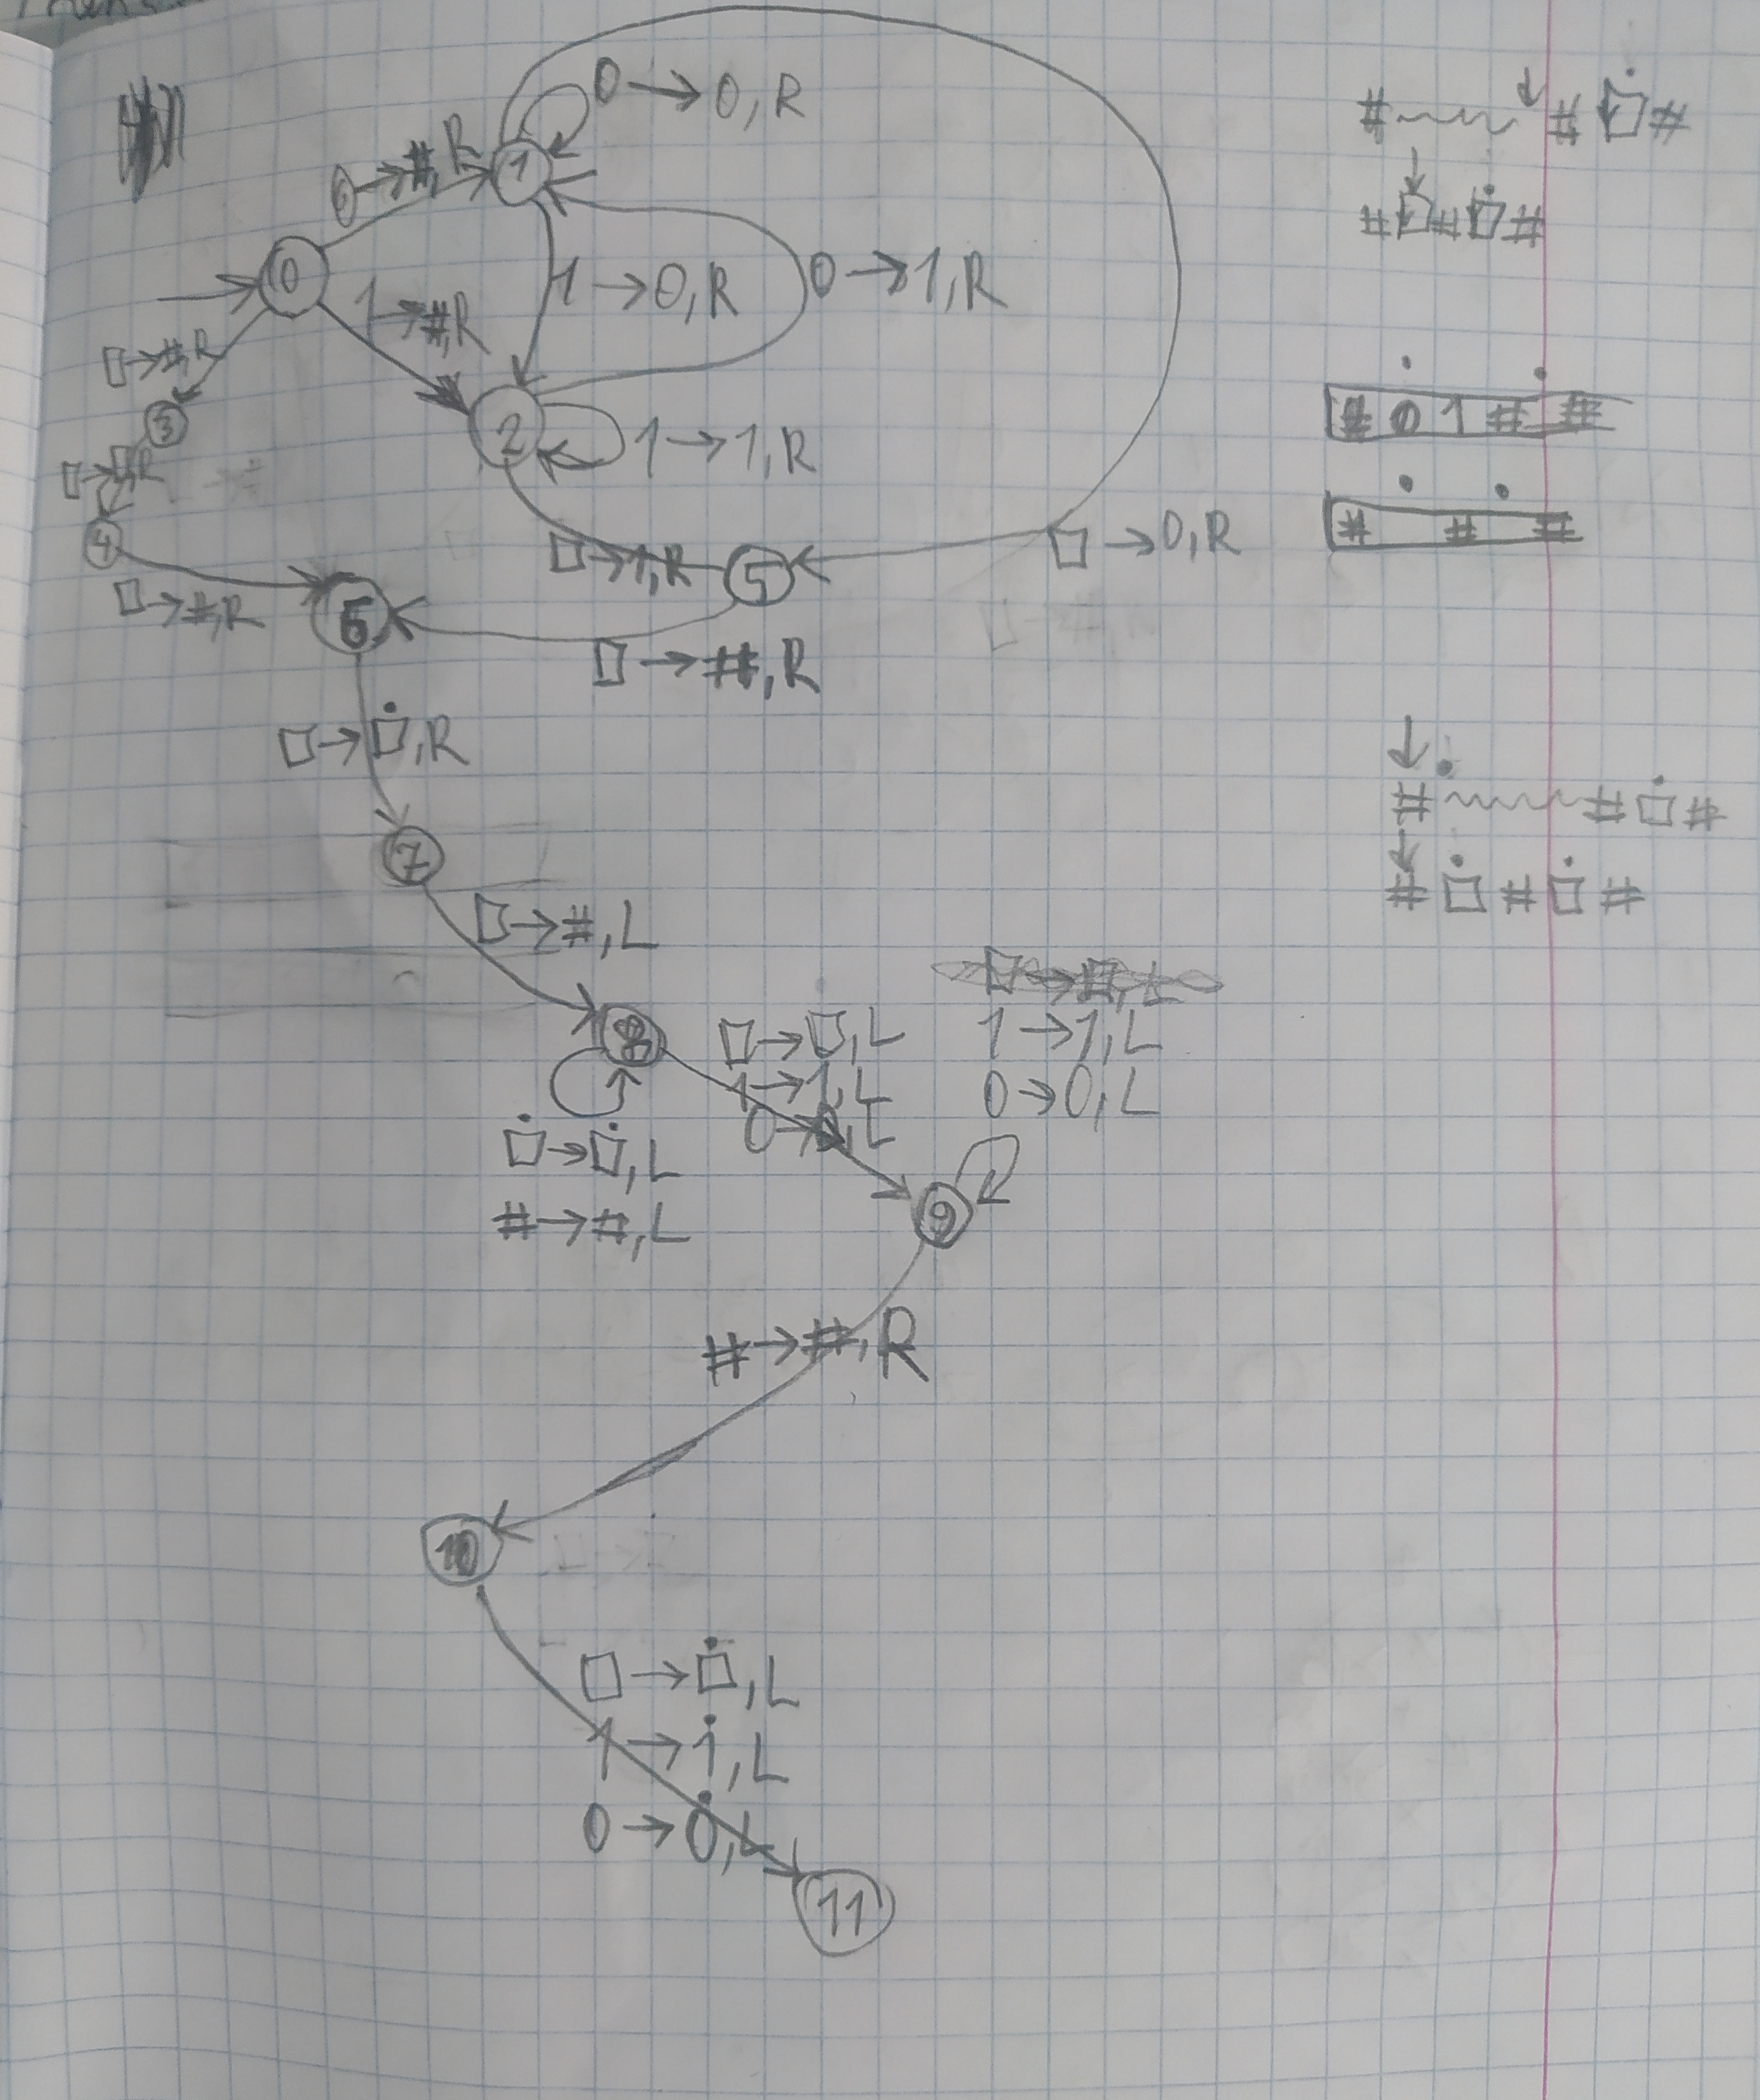 0→0,R
0→#,R
1
# ~~~ # □̇ #
# □ # □̇ #
0
1→0,R
0→1,R
1→#,R
□→#,R
3
2
1→1,R
# 0 1 # #
□→□,R
4
□→1,R
5
□→0,R
# # #
□→#,R
6
□→#,R
□→□̇,R
# ~~~ # □̇ #
7
# □̇ # □̇ #
□→#,L
8
□→□,L
1→1,L
1→1,L
0→0,L
0→0,L
□̇→□̇,L
#→#,L
9
#→#,R
10
□→□̇,L
1→1̇,L
0→0̇,L
11